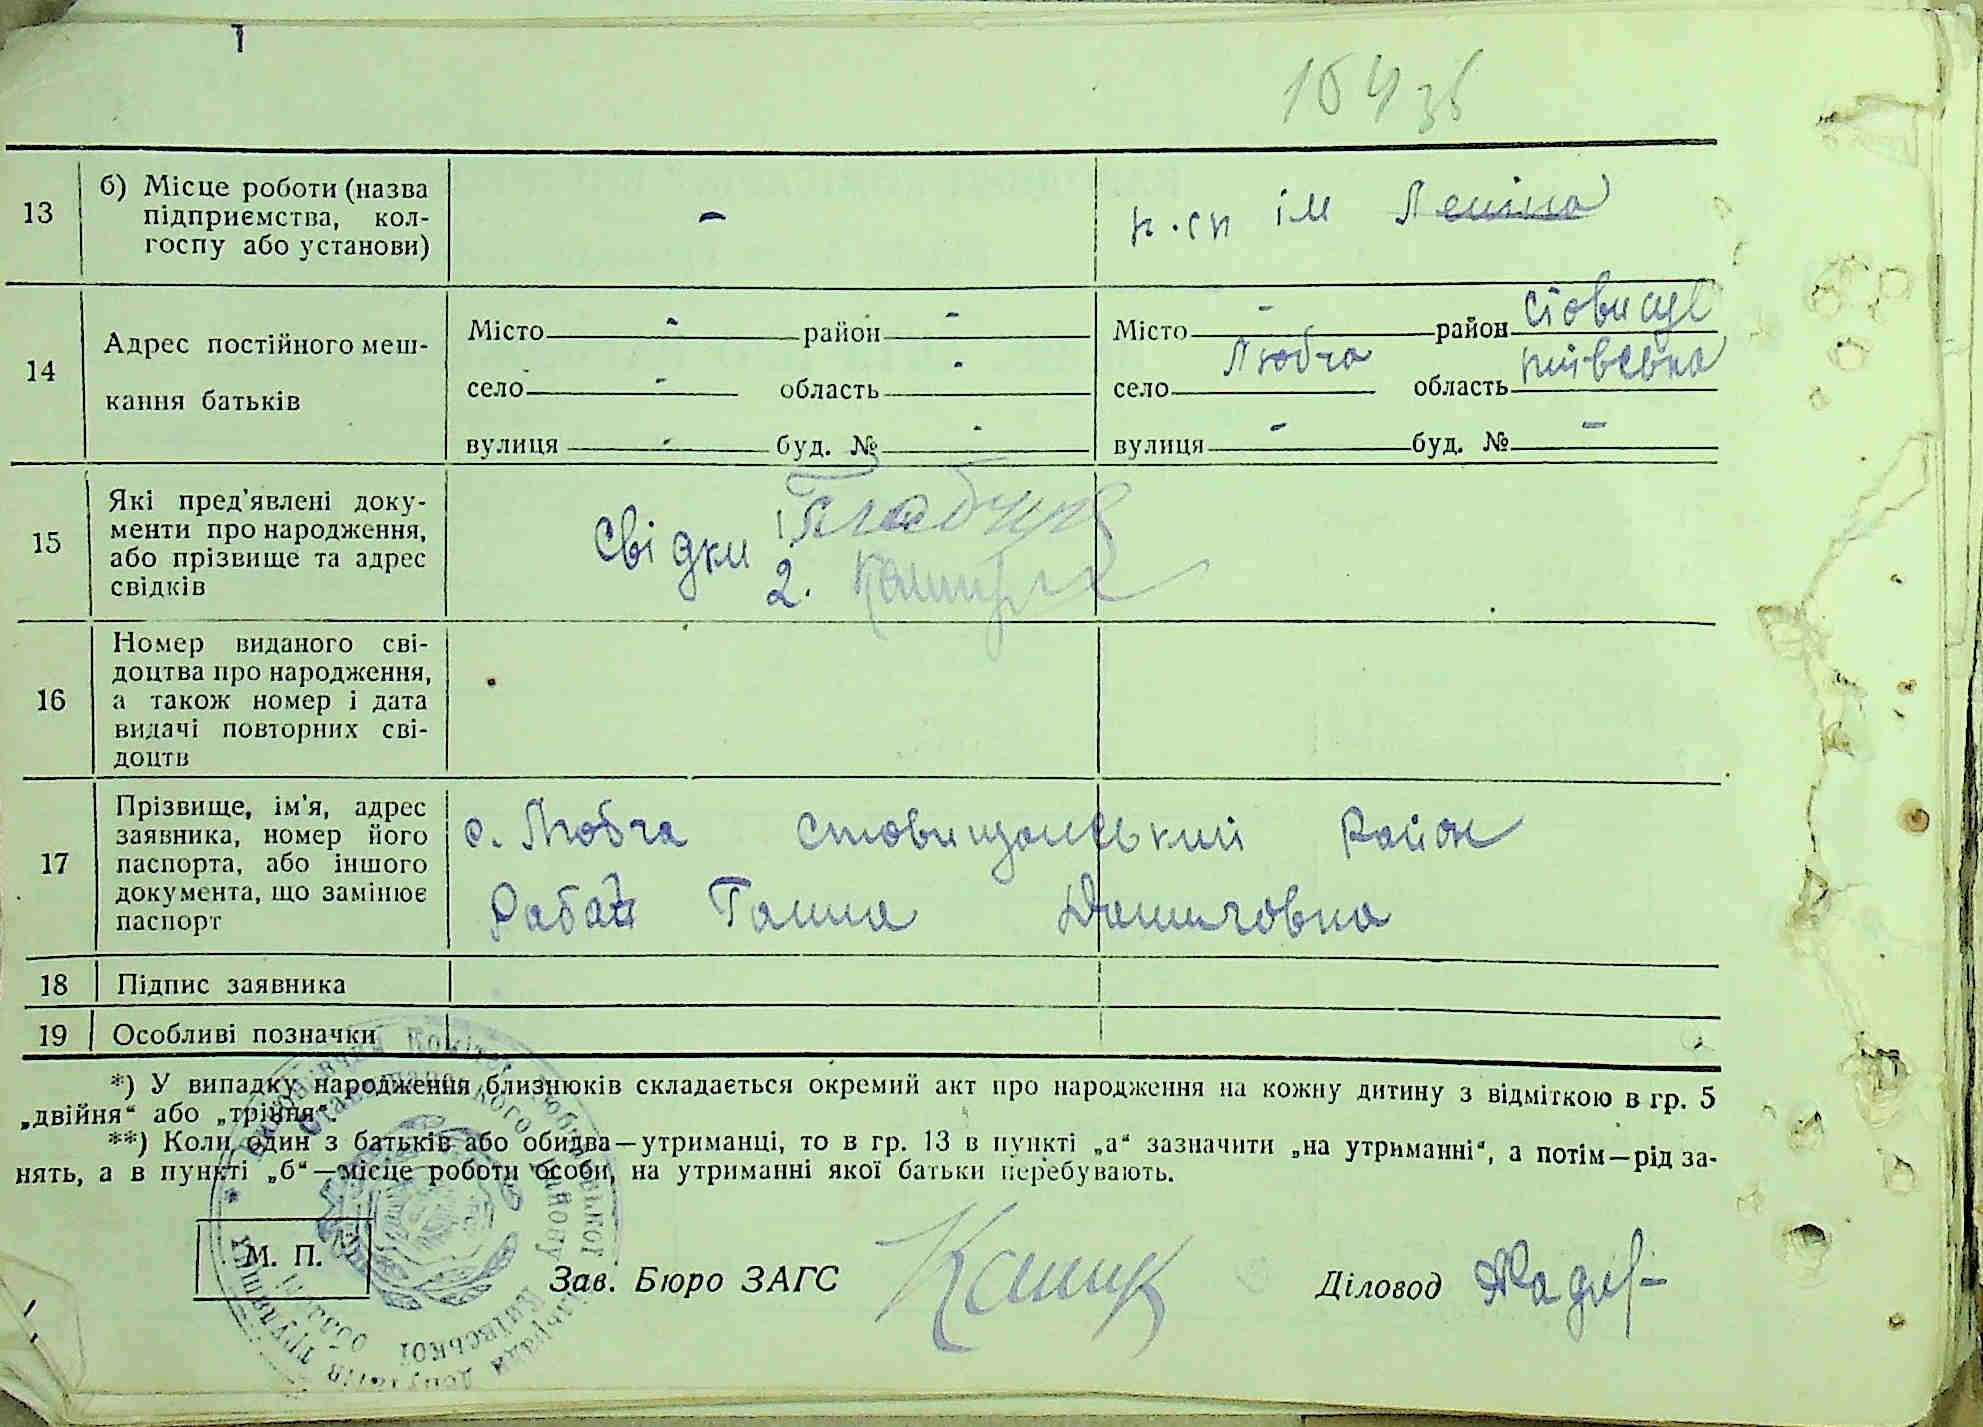 164 зв
13
б) Місце роботи (назва
підприємства, кол-
госпу або установи)
-
к.сп ім Леніна
14
Адрес постійного меш-
кання батьків
Місто - район -
село - область -
вулиця - буд. № -
Місто - район Ставище
село Любча область Київська
вулиця - буд. № -
15
Які пред'явлені доку-
менти про народження,
або прізвище та адрес
свідків
Свідки 1.
2.
16
Номер виданого сві-
доцтва про народження,
а також номер і дата
видачі повторних сві-
доцтв
17
Прізвище, ім'я, адрес
заявника, номер його
паспорта, або іншого
документа, що замінює
паспорт
с. Любча Ставищанський район
Ганна Даниловна
18
Підпис заявника
19
Особливі позначки
*) У випадку народження близнюків складається окремий акт про народження на кожну дитину з відміткою в гр. 5
„двійня“ або „трійня“.
**) Коли один з батьків або обидва—утриманці, то в гр. 13 в пункті „а“ зазначити „на утриманні“, а потім—рід за-
нять, а в пункті „б“—місце роботи особи, на утриманні якої батьки перебувають.
М. П.
Зав. Бюро ЗАГС
Діловод